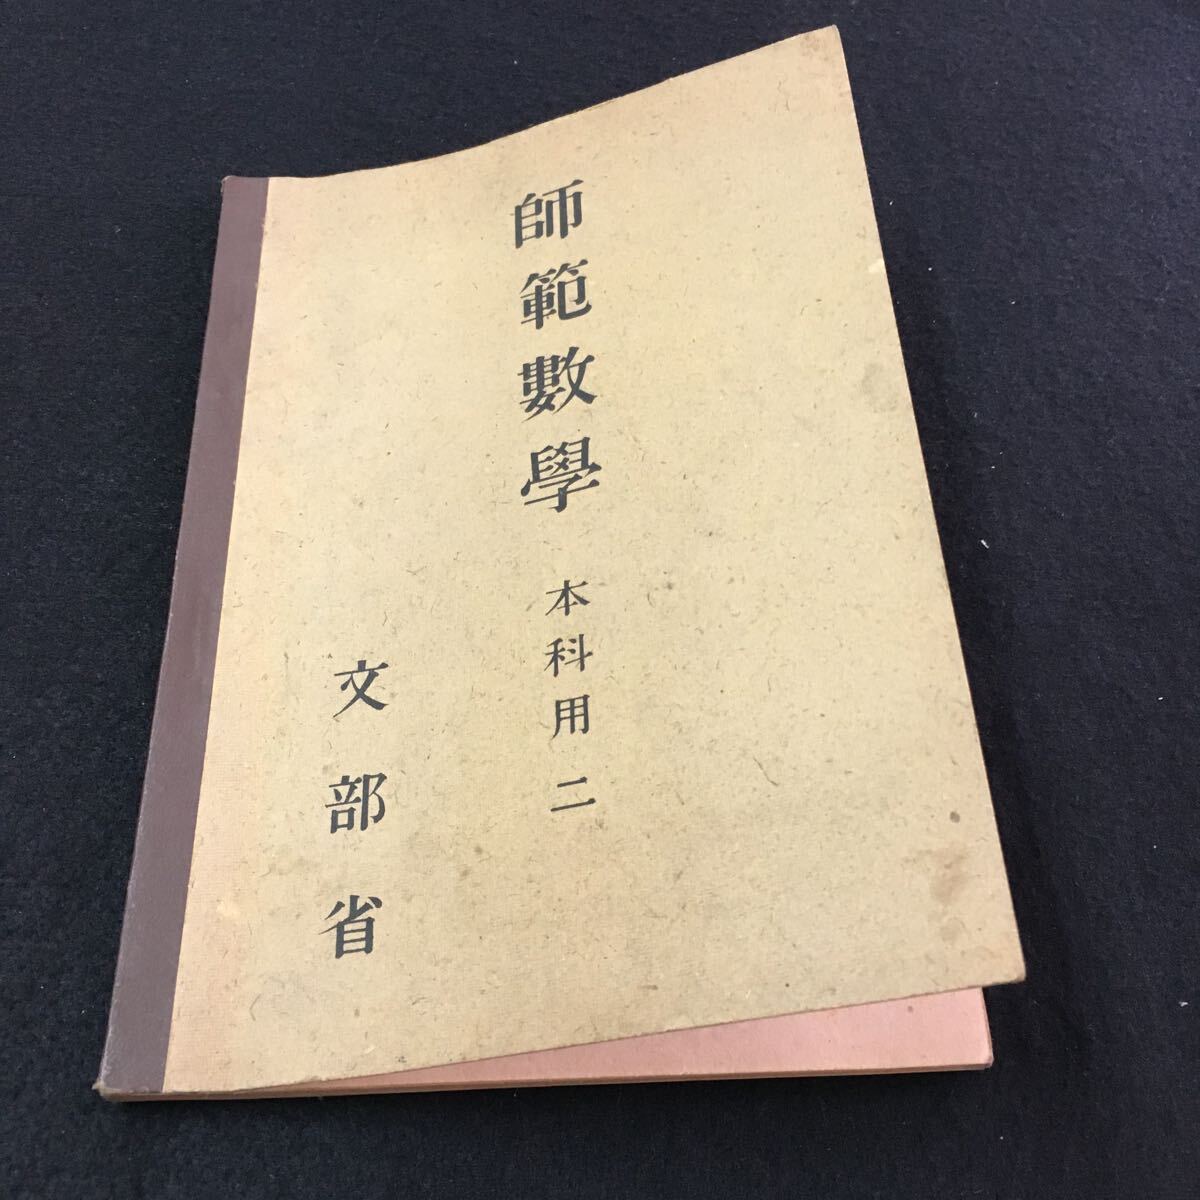 師範數學 本科用 二
文部省